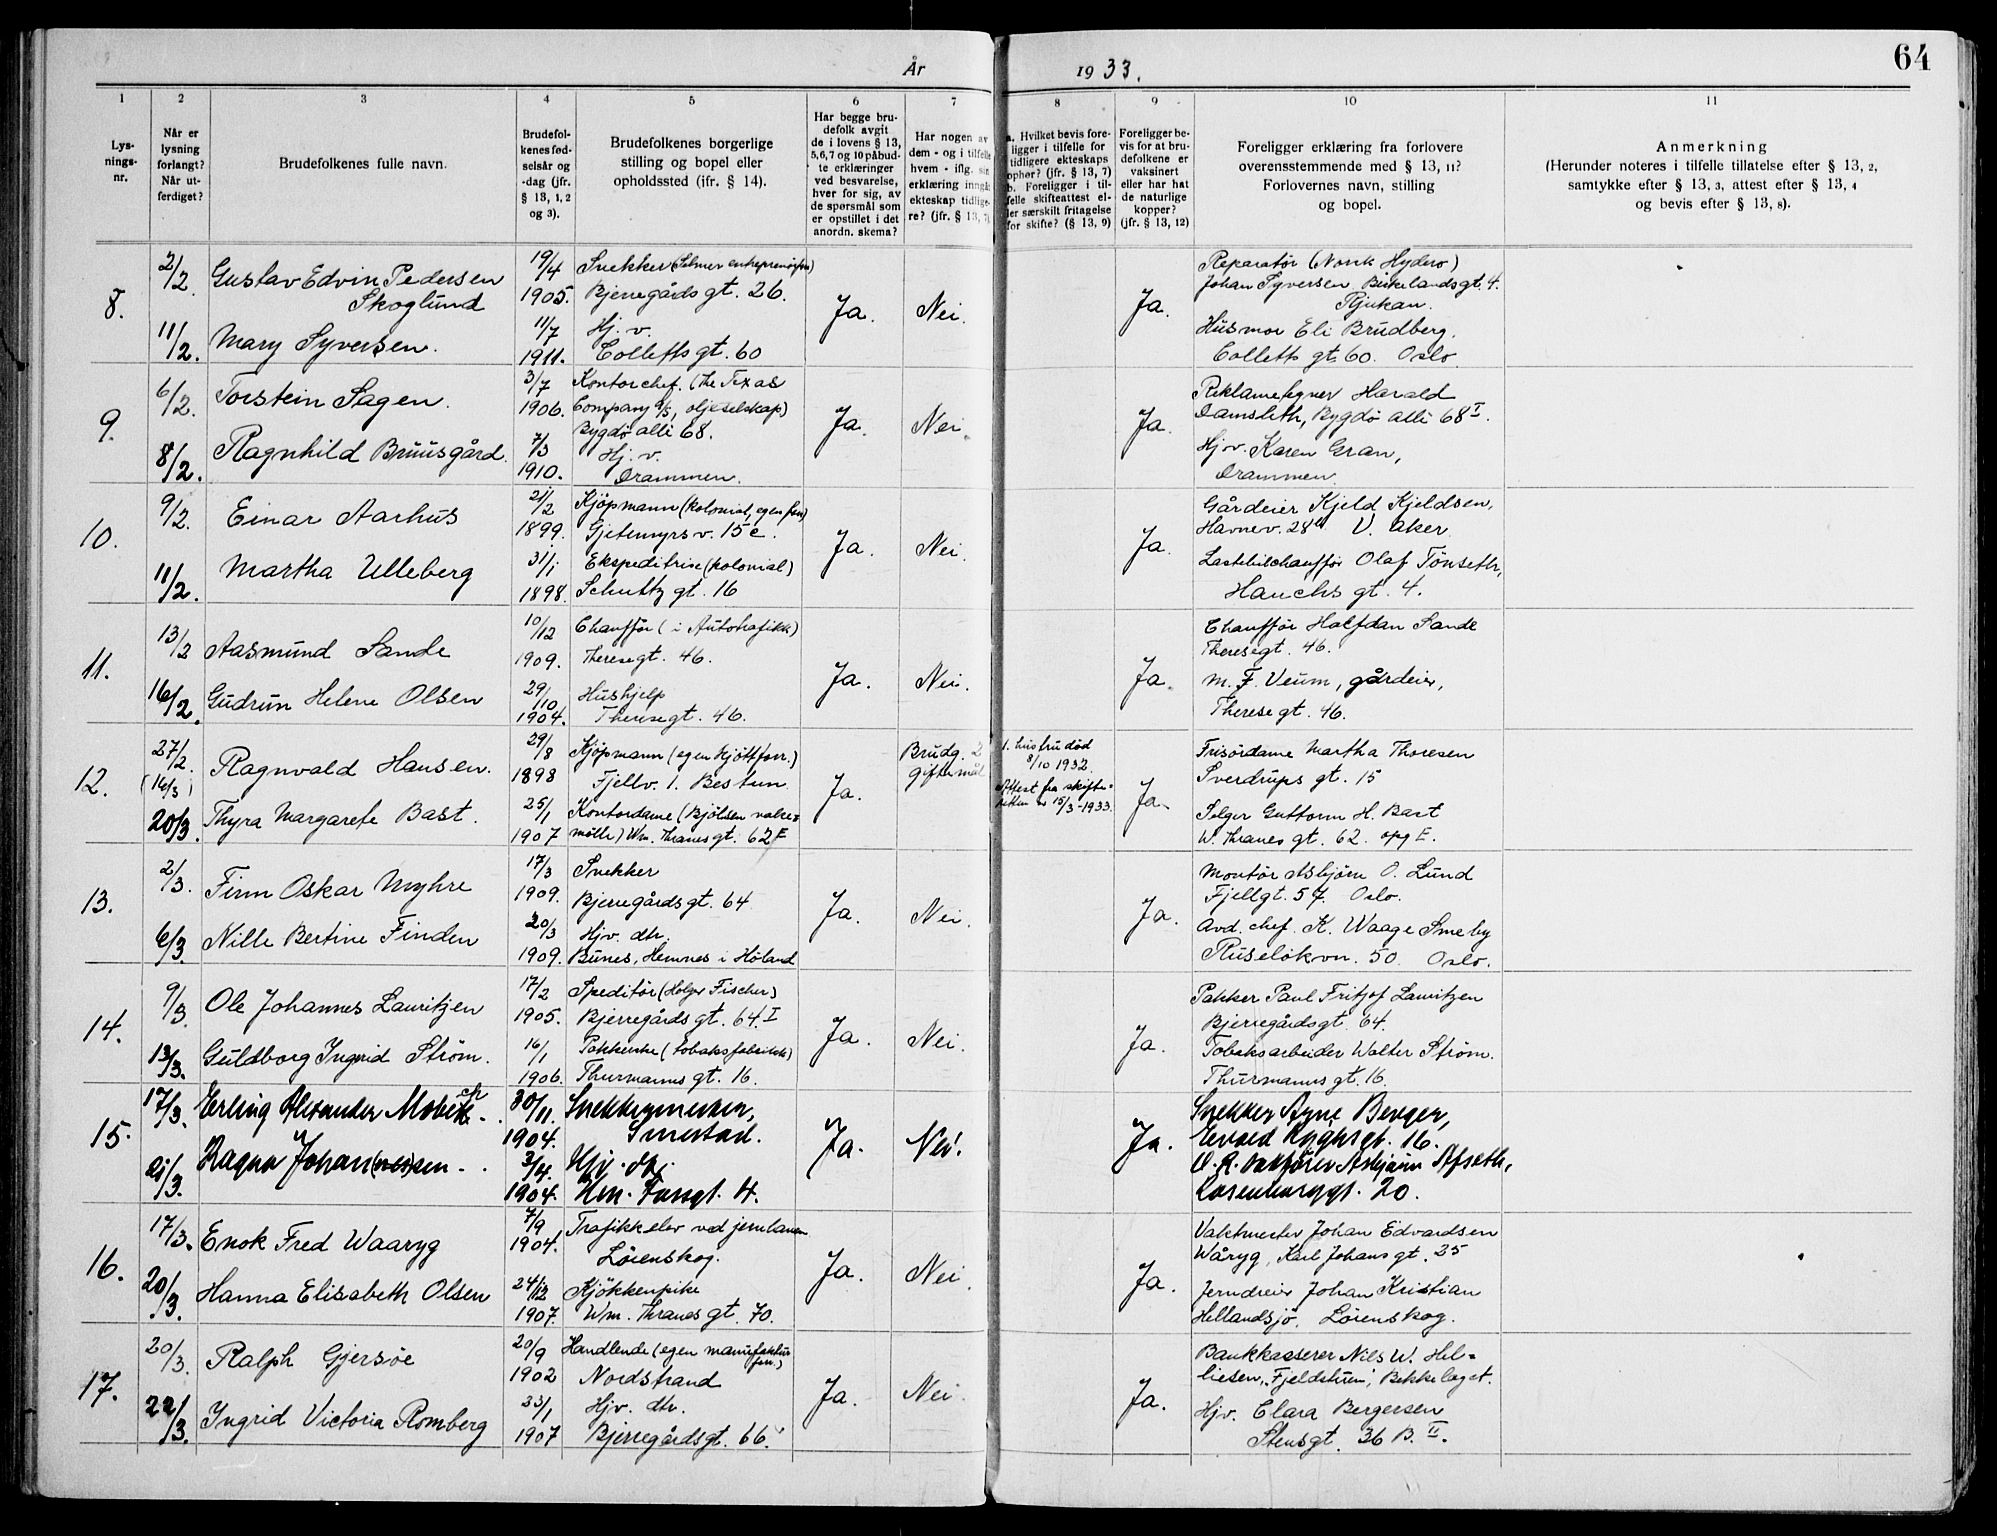 64
År 1933.
1 2 3 4 5 6 7 8 9 10 11
Lys-
nings-
nr.
Når er
lysning
forlangt?
Når ut-
ferdiget?
Brudefolkenes fulle navn.
Brudefol-
kenes fød-
selsår og
-dag (jfr.
§ 13, 1, 2
og 3).
Brudefolkenes borgerlige
stilling og bopel eller
opholdssted (ifr. § 14).
Har begge bru-
defolk avgit
de i lovens § 13,
5,6,7 og 10 påbud-
te erklæringer
ved besvarelse,
hver for sig, av
de spørsmål som
er opstillet i det
anordn. skema?
Har nogen av
dem - og i tilfelle
hvem - iflg. sin
erklæring inngåt
ekteskap tidlige-
re? (jfr. § 13, 7)
a. Hvilket bevis fore-
ligger i tilfelle for
tidligere ekteskaps
ophør? (jfr. § 13, 7)
b. Foreligger i til-
felle skifteattest el-
ler særskilt fritagelse
for skifte? (§ 13, 9)
Foreligger be-
vis for at bru-
defolkene er
vaksinert
eller har hat
de naturlige
kopper?
(jfr. § 13, 12)
Foreligger erklæring fra forlovere
overensstemmende med § 13, 11?
Forlovernes navn, stilling
og bopel.
Anmerkning
(Herunder noteres i tilfelle tillatelse efter § 13, 2,
samtykke efter § 13, 3, attest efter § 13, 4
og bevis efter § 13, 8).
8.
2/2
11/2.
Gustav Edvin Pedersen
Skoglund
Mary Syversen.
19/4
1905.
11/7
1911.
Snekker (Selmer entreprenørfirma)
Bjerregårds gt. 26.
Hj. v.
Colletts gt. 60
Ja.
Nei.
Ja.
Reparatør (Norsk Hydro)
Johan Syversen Birkelandsgt. 4.
Rjukan.
Husmor Eli Brudberg.
Colletts gt. 60. Oslo.
9.
6/2.
8/2.
Torstein Sagen.
Ragnhild Bruusgård.
3/7
1906.
7/3
1910.
Kontorchef. (The Texas
Company A/S, oljeselskap)
Bygdø allé 68.
Hj. v.
Drammen.
Ja.
Nei.
Ja.
Reklametegner Harald
Damsleth, Bygdö allé 68 I.
Hjv. Karen Gran,
Drammen.
10.
9/2.
11/2.
Einar Aarhus
Martha Ulleberg
21/2
1899.
31/1
1898.
Kjöpmann (kolonial, egen forr.)
Gjetemyrsv. 15 c.
Ekspeditrise (kolonial)
Schultz gt. 16
Ja.
Nei.
Ja.
Gårdeier Kjeld Kjeldsen,
Havnev. 28 V. Aker.
Lastebilchauffør Olaf Tönseth,
Hauchs gt. 4.
11.
13/2
16/2.
Aasmund Sande
Gudrun Helene Olsen
10/12
1909.
29/10
1904.
Chauffør (i Autotrafikk)
Theresegt. 46.
Hushjelp
Theresegt. 46.
Ja.
Nei.
Ja.
Chauffør Halfdan Sande
Theresegt. 46.
M. F. Veum, gårdeier,
Therese gt. 46.
12.
27/2.
(16/3)
20/3.
Ragnvald Hansen.
Thyra Margarete Bast.
29/8
1898
25/1
1907
Kjöpmann (egen kjöttforr.)
Fjellv. 1. Bestun.
Kontordame (Bjölsen valse-
mölle) Wm. Thranes gt. 62 E
Ja.
Brudg. 2
giftermål
1. hustru död
8/10 1932.
Attest fra skifte-
retten av 15/3-1933.
Ja.
Frisördame Martha Thoresen
Sverdrups gt. 15
Selger Guttorm H. Bast
W. Thranes gt. 62. opg E.
13.
2/3.
6/3.
Finn Oskar Myhre
Nille Bertine Finden
17/3
1909.
20/3
1909.
Snekker
Bjerregårdsgt. 64.
Hjv. dtr.
Bunes, Hemnes i Höland
Ja.
Nei.
Ja.
Montör Asbjörn O. Lund
Fjellgt. 57. Oslo.
Avd. chef. K. Waage Smeby
Ruselökvn. 50. Oslo.
14.
9/3.
13/3.
Ole Johannes Lauritzen
Guldborg Ingrid Ström.
17/2
1905.
16/1
1906.
Speditör (Holger Fischer)
Bjerregårds gt. 64. I
Pakkerske (tobaksfabrikk)
Thurmanns gt. 16.
Ja.
Nei.
Ja.
Pakker Paul Fritjof Lauritzen
Bjerregårdsgt. 64.
Tobaksarbeider Walter Ström.
Thurmanns gt. 16.
15.
17/3.
21/3.
Erling Alexander
Ragna Johan(nes)sen.
30/11.
1904.
3/4.
1904.
Snekkermester,
Smestad.
Hjv. dtr.
Km. gt. 4.
Ja.
Nei.
Ja.
Snekker Arne Berger,
Eevald Ryghsgt. 16.
Asbjørn Afseth,
Rosenborggt. 20.
16.
17/3.
20/3.
Enok Fred Waaryg
Hanna Elisabeth Olsen
7/9
1904.
24/12
1907.
Trafikkelev ved jernbanen
Lörenskog.
Kjökkenpike
Wm. Thranes gt. 70.
Ja.
Nei.
Ja.
Vaktmester Johan Edvardsen
Wåryg, Karl Johans gt. 25
Jerndreier Johan Kristian
Hellandsjö. Lörenskog.
17.
20/3.
22/3.
Ralph Gjersöe
Ingrid Victoria Romberg
20/9
1902
23/1
1907
Handlende (egen manufaktur
forr.)
Nordstrand
Hjv. dtr.
Bjerregårdsgt. 66.
Ja.
Nei.
Ja.
Bankkasserer Nils W. Hel-
liesen, "Fjeldstuen", Bekkelaget.
Hjv. Clara Bergersen
Stensgt. 36 B. II.